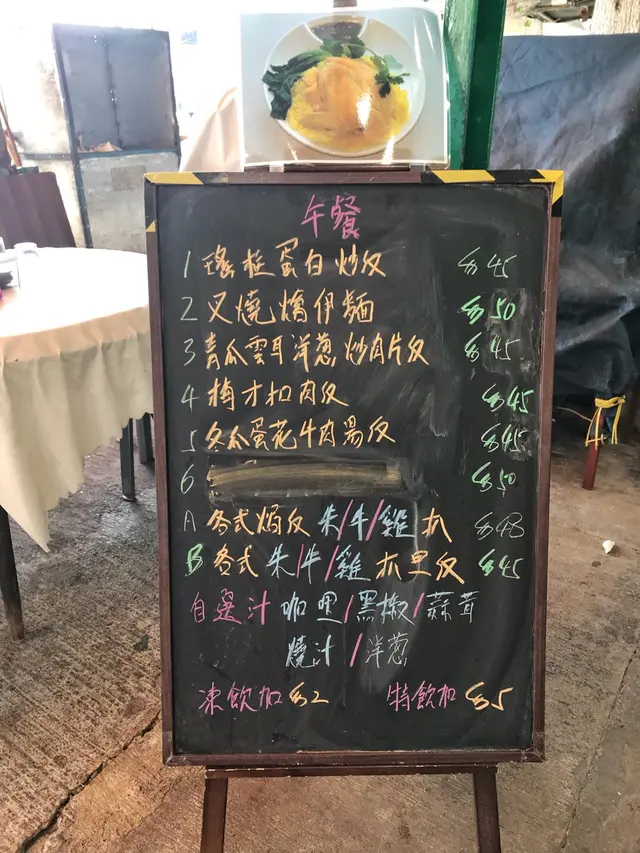 午餐
1 瑤柱蛋白炒反 $45
2 叉燒伊麵 $50
3 青瓜雲耳洋蔥炒肉片反 $45
4 梅才扣肉反 $45
5 冬瓜蛋花牛肉湯反 $45
6 $50
A 各式焗反 朱/牛/雞 扒 $48
B 各式 朱/牛/雞 扒反 $45
自選汁 咖喱/黑椒/蒜茸
燒汁/洋蔥
凍飲加 $2 特飲加 $5